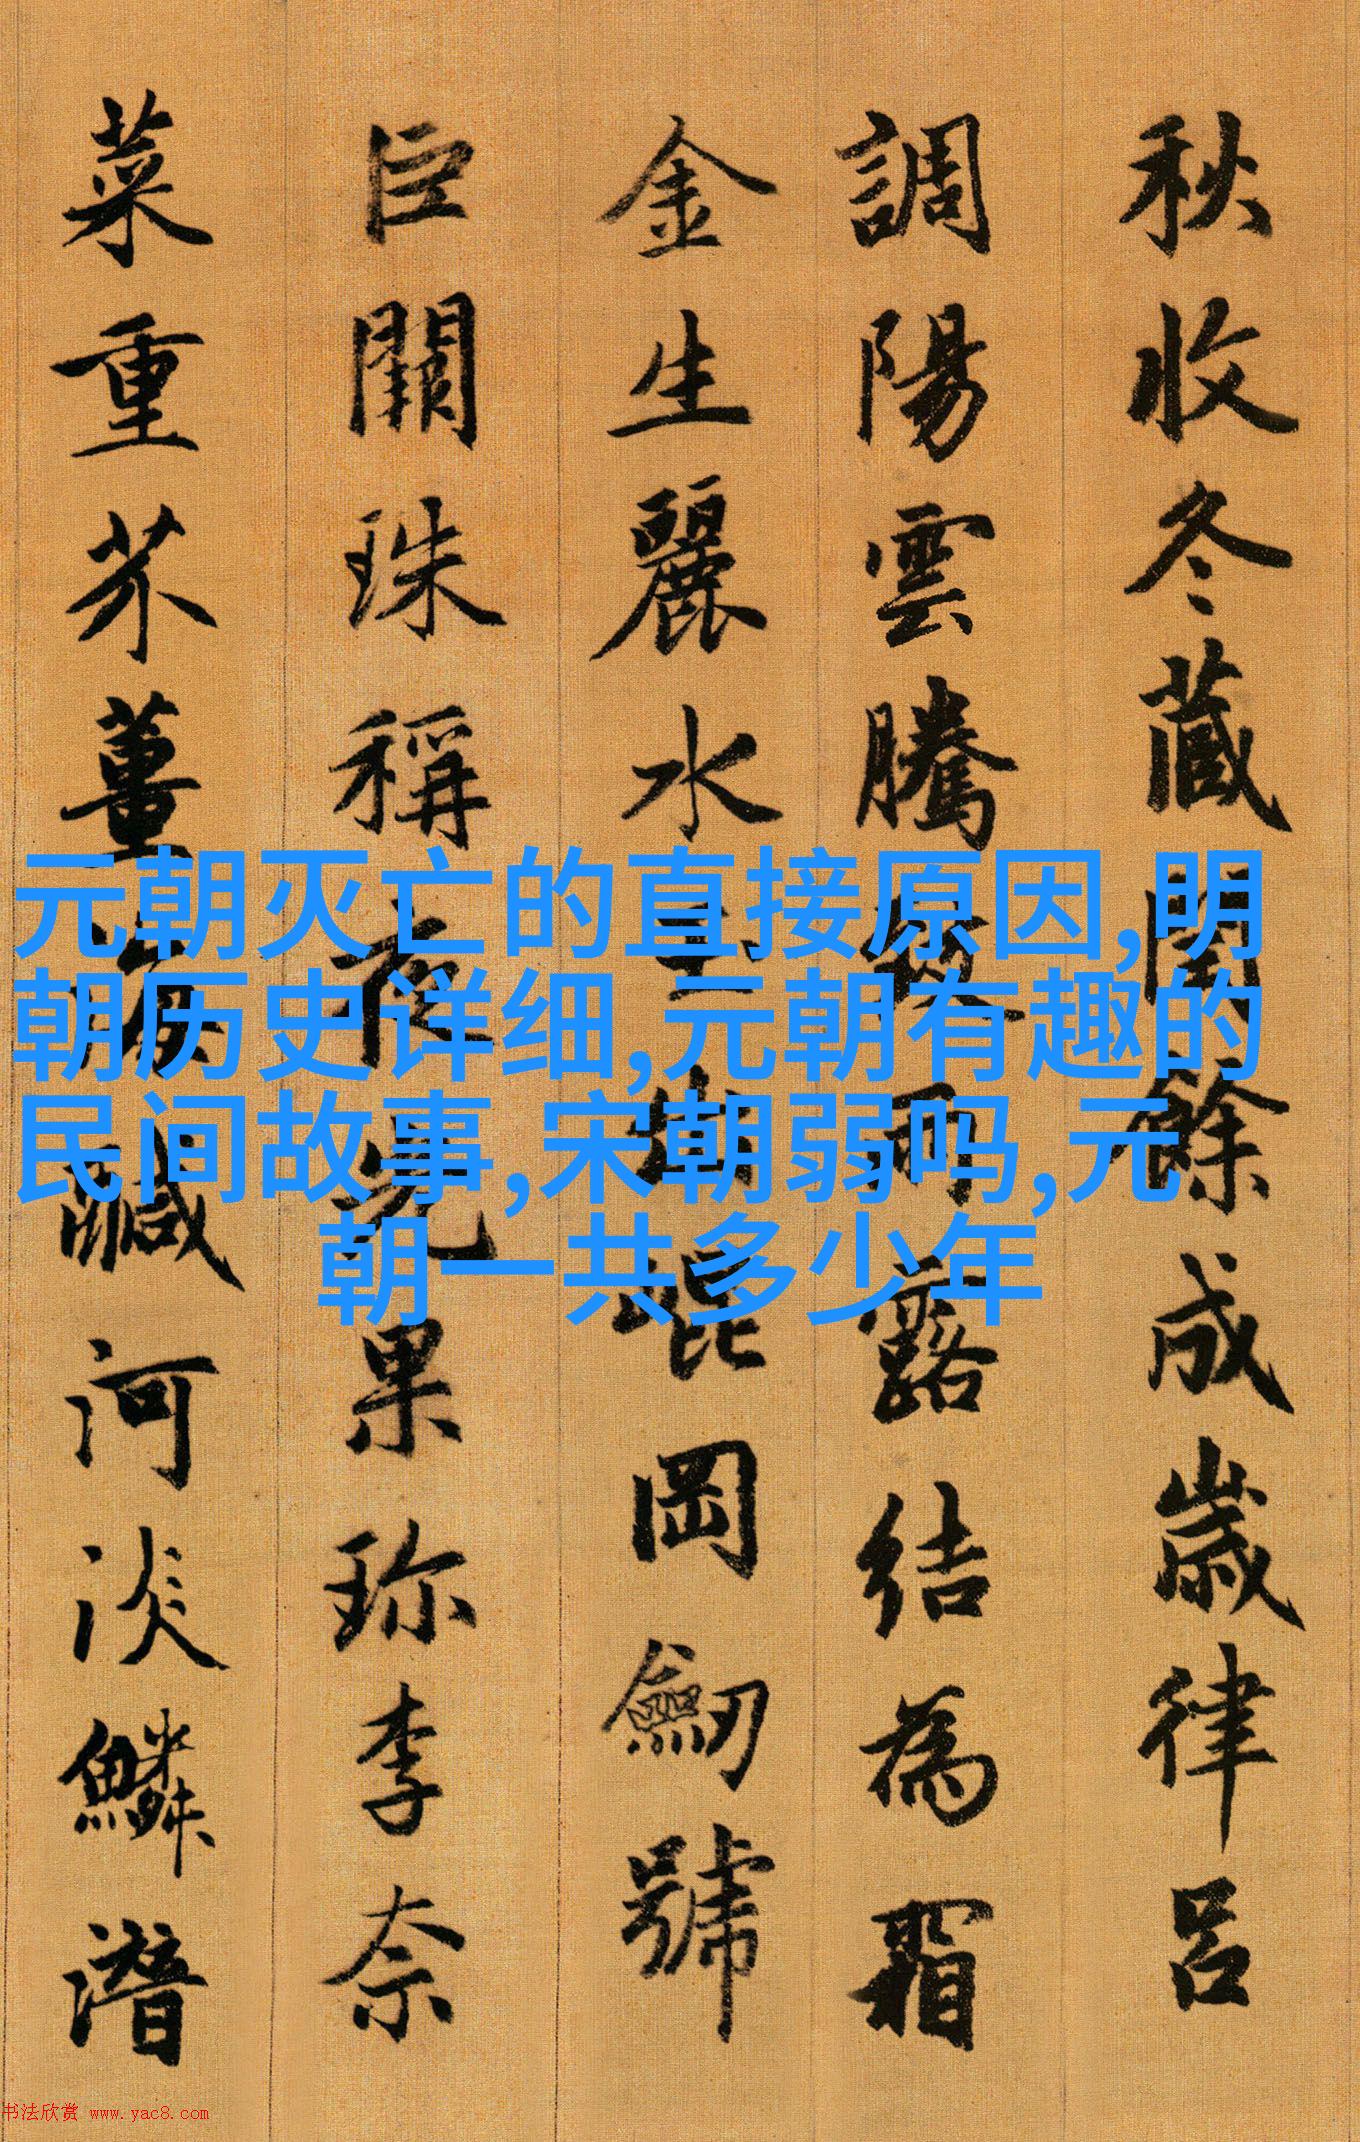 秋收冬藏閏餘成歲律呂
調陽雲騰致雨露結為霜
金生麗水玉出崐岡劔號
巨闕珠稱夜光果珍李奈
菜重芥薑海鹹河淡鱗潛
元朝灭亡的直接原因,明
朝历史详细,元朝有趣的
民间故事,宋朝弱吗,元
朝一共多少年
书法欣赏 www.yac8.com